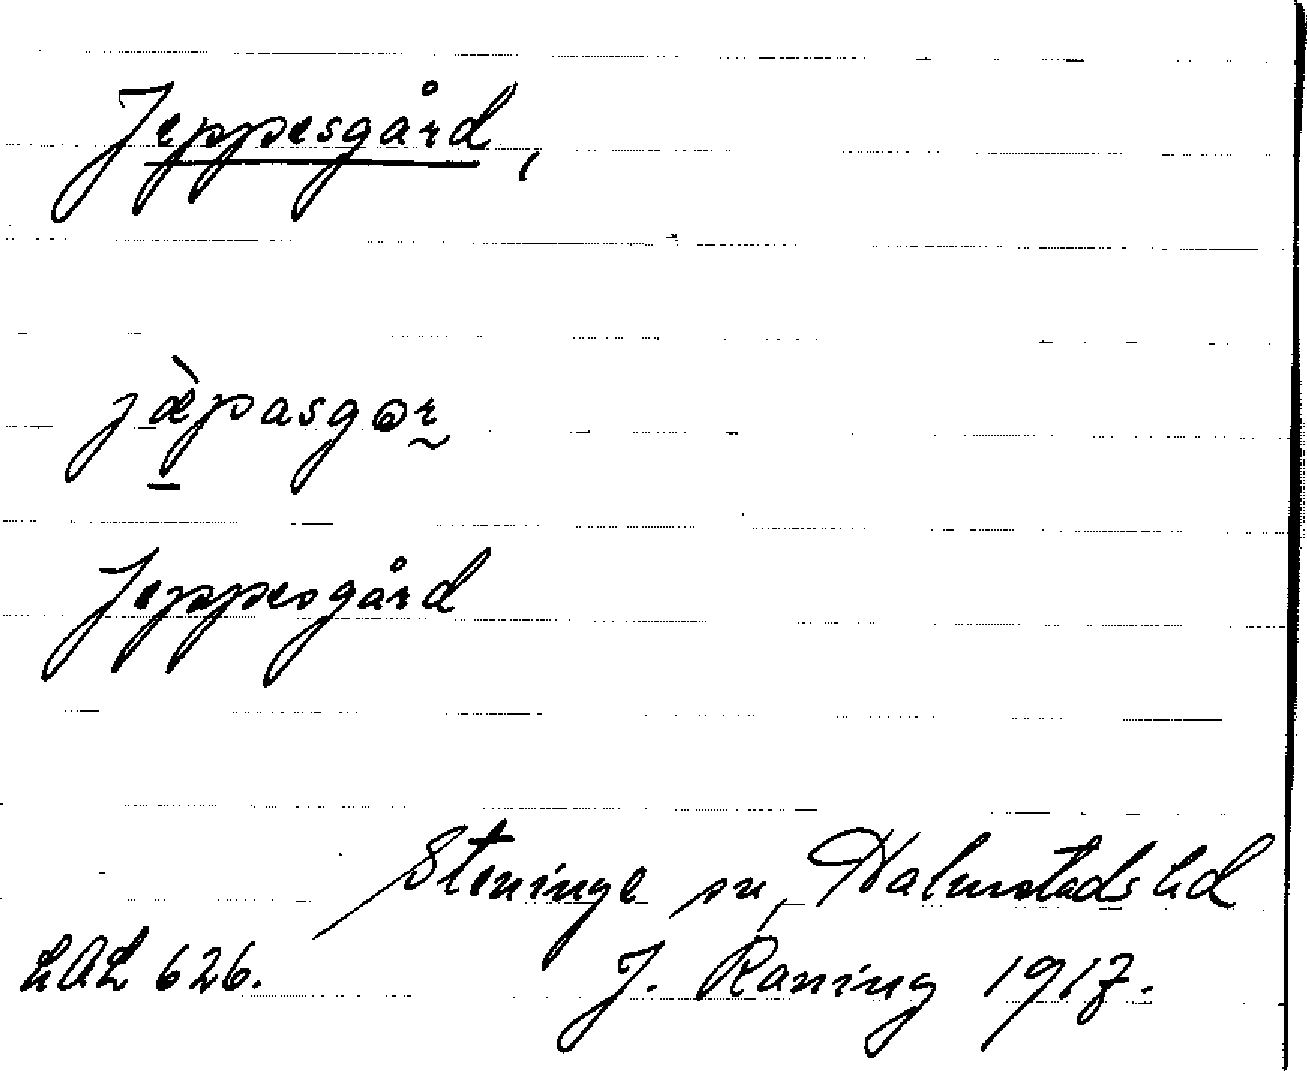 Jeppesgård,
jæ̀pasgɷr
Jeppesgård
Steninge sn, Halmstads hd
LAL 626. J. Raning 1917.